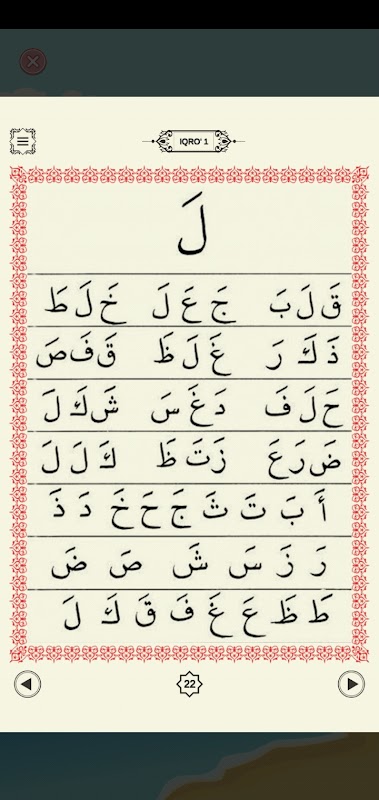 IQRO' 1
لَ
قَلَبَ جَعَلَ خَلَطَ
ذَكَرَ غَلَظَ قَفَصَ
حَلَفَ دَغَسَ شَكَلَ
ضَرَعَ زَتَظَ كَلَلَ
أَ بَ تَ ثَ جَ حَ خَ دَ ذَ
رَ زَ سَ شَ صَ ضَ
طَ ظَ عَ غَ فَ قَ كَ لَ
22